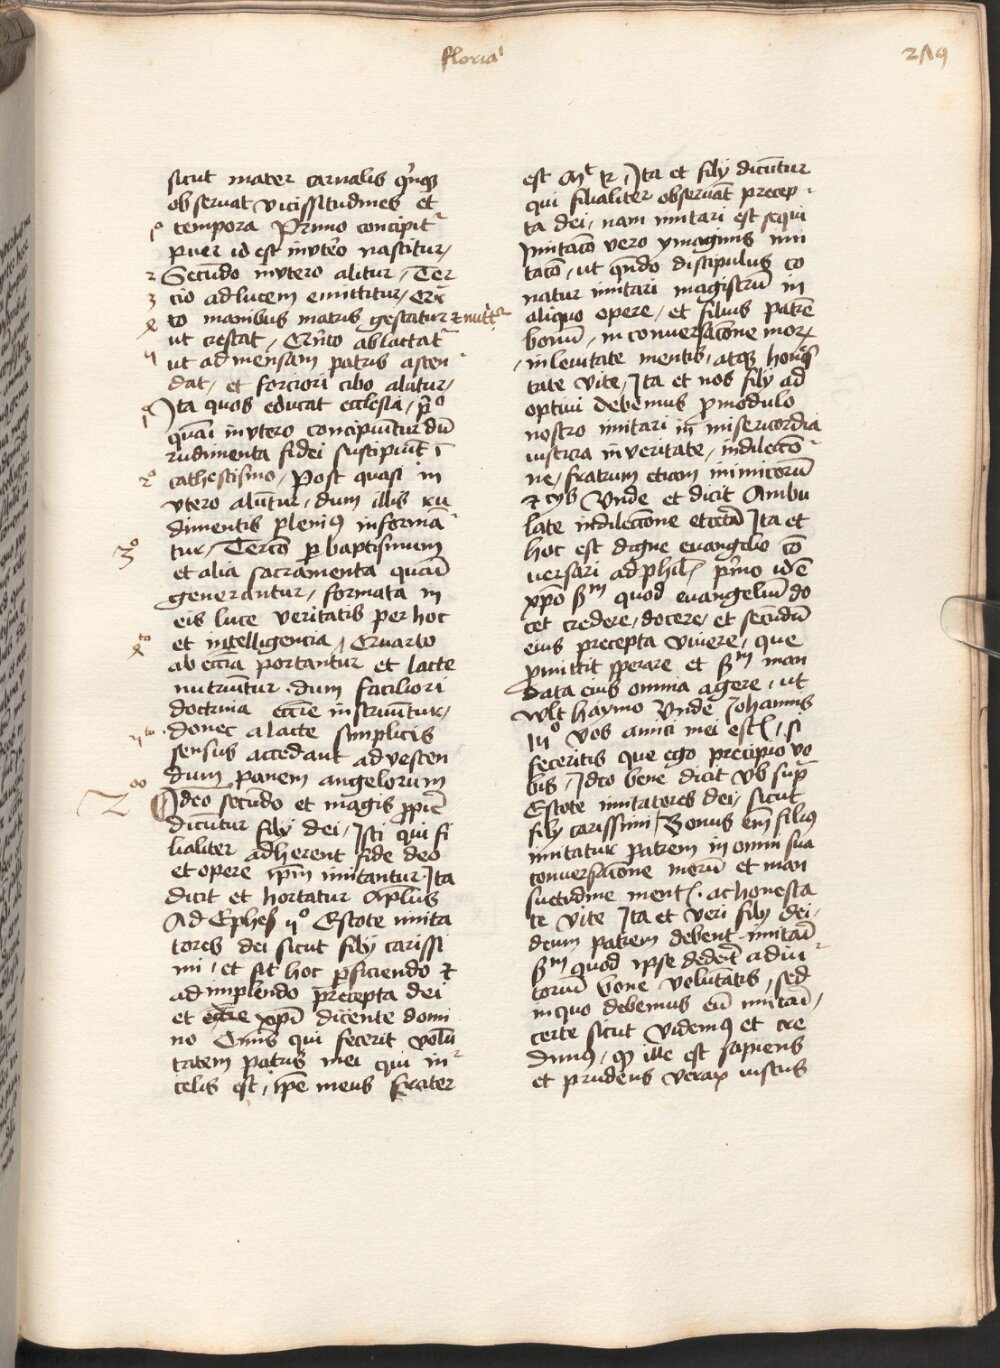 floria
219
sicut mater carnalis qͥnqꝫ
observat vicissitudines et
tempora Primo concipitᷣ
puer id est invtero nascitur
Secūdo invtero alitur Ter
cio adlucem emittitur
to manibus matris gestatur et nutͥtᷣ
ut crescat ablactatᷣ
ut admensam patris ascen
dat, et forciori cibo alatur
Ita quos educat ecclesia, pͦ
quasi invtero concipiūtur dū
rudimenta fidei suscipiūt ī
cathecismo, Post quasi in
vtero alūtur, dum illis ru
dimentis plenius informā
tur, Tercō per baptismum
et alia sacramenta quasi
generantur, formata in
eis luce veritatis per hoc
et intelligencia, Quarto
ab eccīa portantur et lacte
nutriūtur dum faciliori
doctrina eccīe instruūtur,
donec alacte simplicis
sensus accedant advescen
dum panem angelorum
Ideo secūdo et magis ꝓpie
dicūtur filij dei, Isti qui fi
lialiter adherent fide deo
et opere ip̄m imitantur Ita
dicit et hortatur Apl̄us
Ad Ephes vͦ Estote imita
tores dei sicut filij carissi
mi, et sit hoc perficiendo et
adimplendo precepta dei
et xpī dicente domi
no qui fecerit volū
tatem patris mei qui in
celis est, ip̄e meus frater
est Ita et filij dicūtur
qui filialiter observāt precep
ta dei, nam imitari est sequi
Imitacō vero ymaginis imi
tacō, ut qn̄do discipulus co
natur imitari magistrū in
aliquo opere, et filius patrē
bonū, in conversacōne morꝝ
inlevitate mentis, atqꝫ hones
tate vite, Ita et nos filij ad
optivi debemus ꝓmodulo
nostro imitari in misericordia
iusticia in veritate, indilecō
ne, fratrum etiam inimicorū
Unde et dicit Ambu
late indilectōne Ita et
hoc est digne evangelio cō
versari ad phil' pͥmo id ē
xp̄o sᵐ quod evangeliū do
cet credere, docere, et secūdū
eius precepta vivere, que
ꝓmittit sperare et sᵐ man
data eius omnia agere, ut
vult haymo Unde Johannis
Vos amici mei estis, si
feceritis que ego precipio vo
bis, Ideo bene dicit vb sup̄
Estote imitatores dei, sicut
filij carissimi, Bonus em̄ filius
imitatur patrem in omni sua
conversacōne morū et man
suetudine ment' ac honesta
te vite Ita et veri filij dei,
deum patrem debent imitari
sᵐ quod ipse dederit adiu
torū bone volūtatis, sed
inquo debemus eū imitari,
certe sicut videmus et cre
dimus, qͥ ille est sapiens
et prudens verax iustus